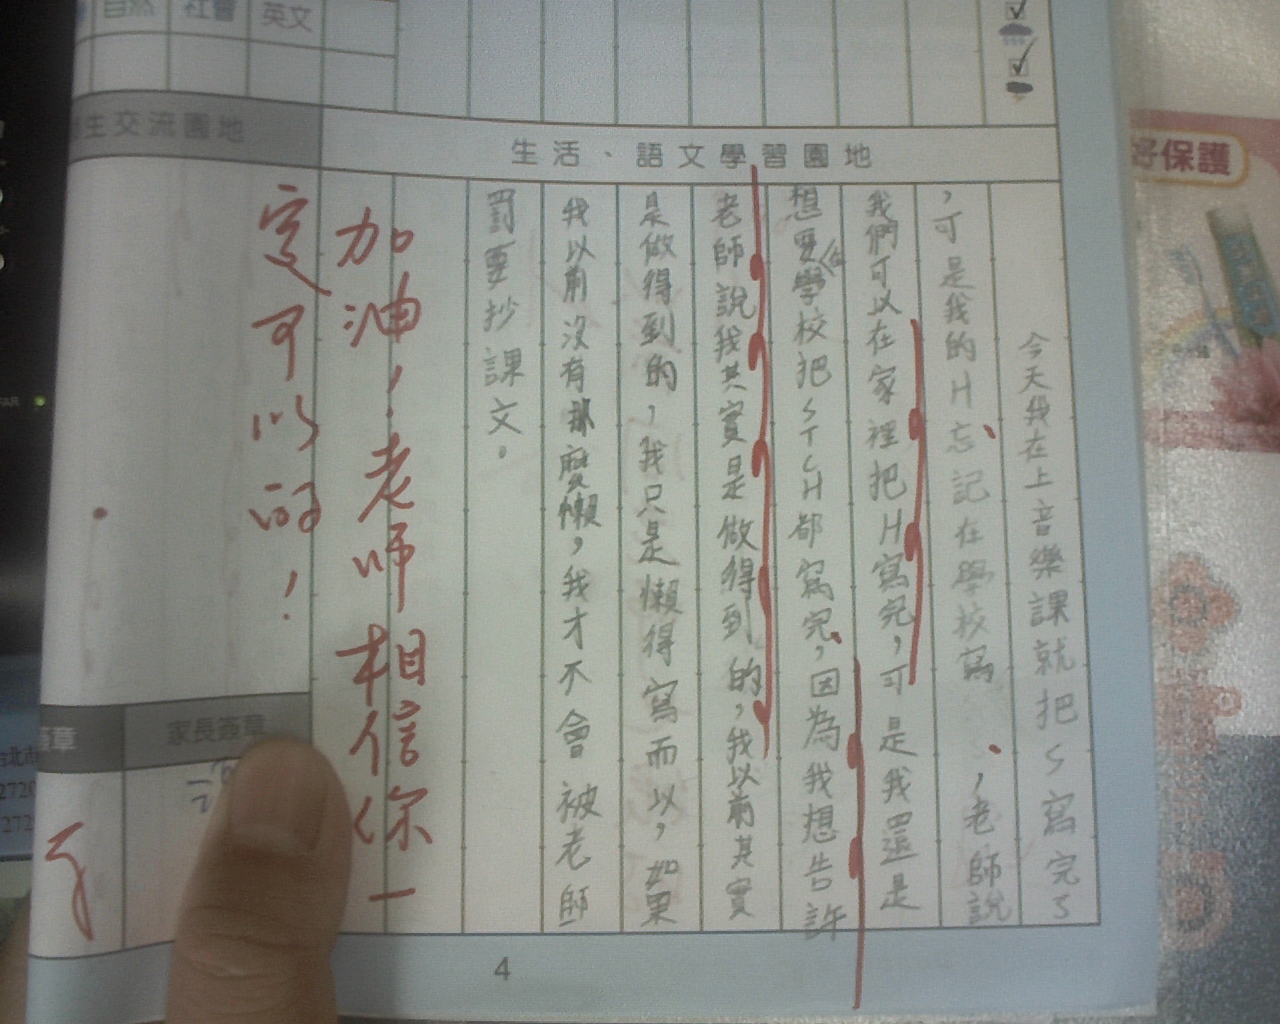 自然
社會
英文
生交流園地
生活、語文學習園地
今天我在上音樂課就把S寫完了
，可是我的H忘記在學校寫，老師說
我們可以在家裡把H寫完，可是我還是
想要在學校把STCH都寫完，因為我想告訴
老師說我其實是做得到的，我以前其實
是做得到的，我只是懶得寫而以，如果
我以前沒有那麼懶，我才不會被老師
罰要抄課文。
加油！老師相信你一
定可以的！
家長簽章
章
4
好保護
台北市
2720
272
FAR